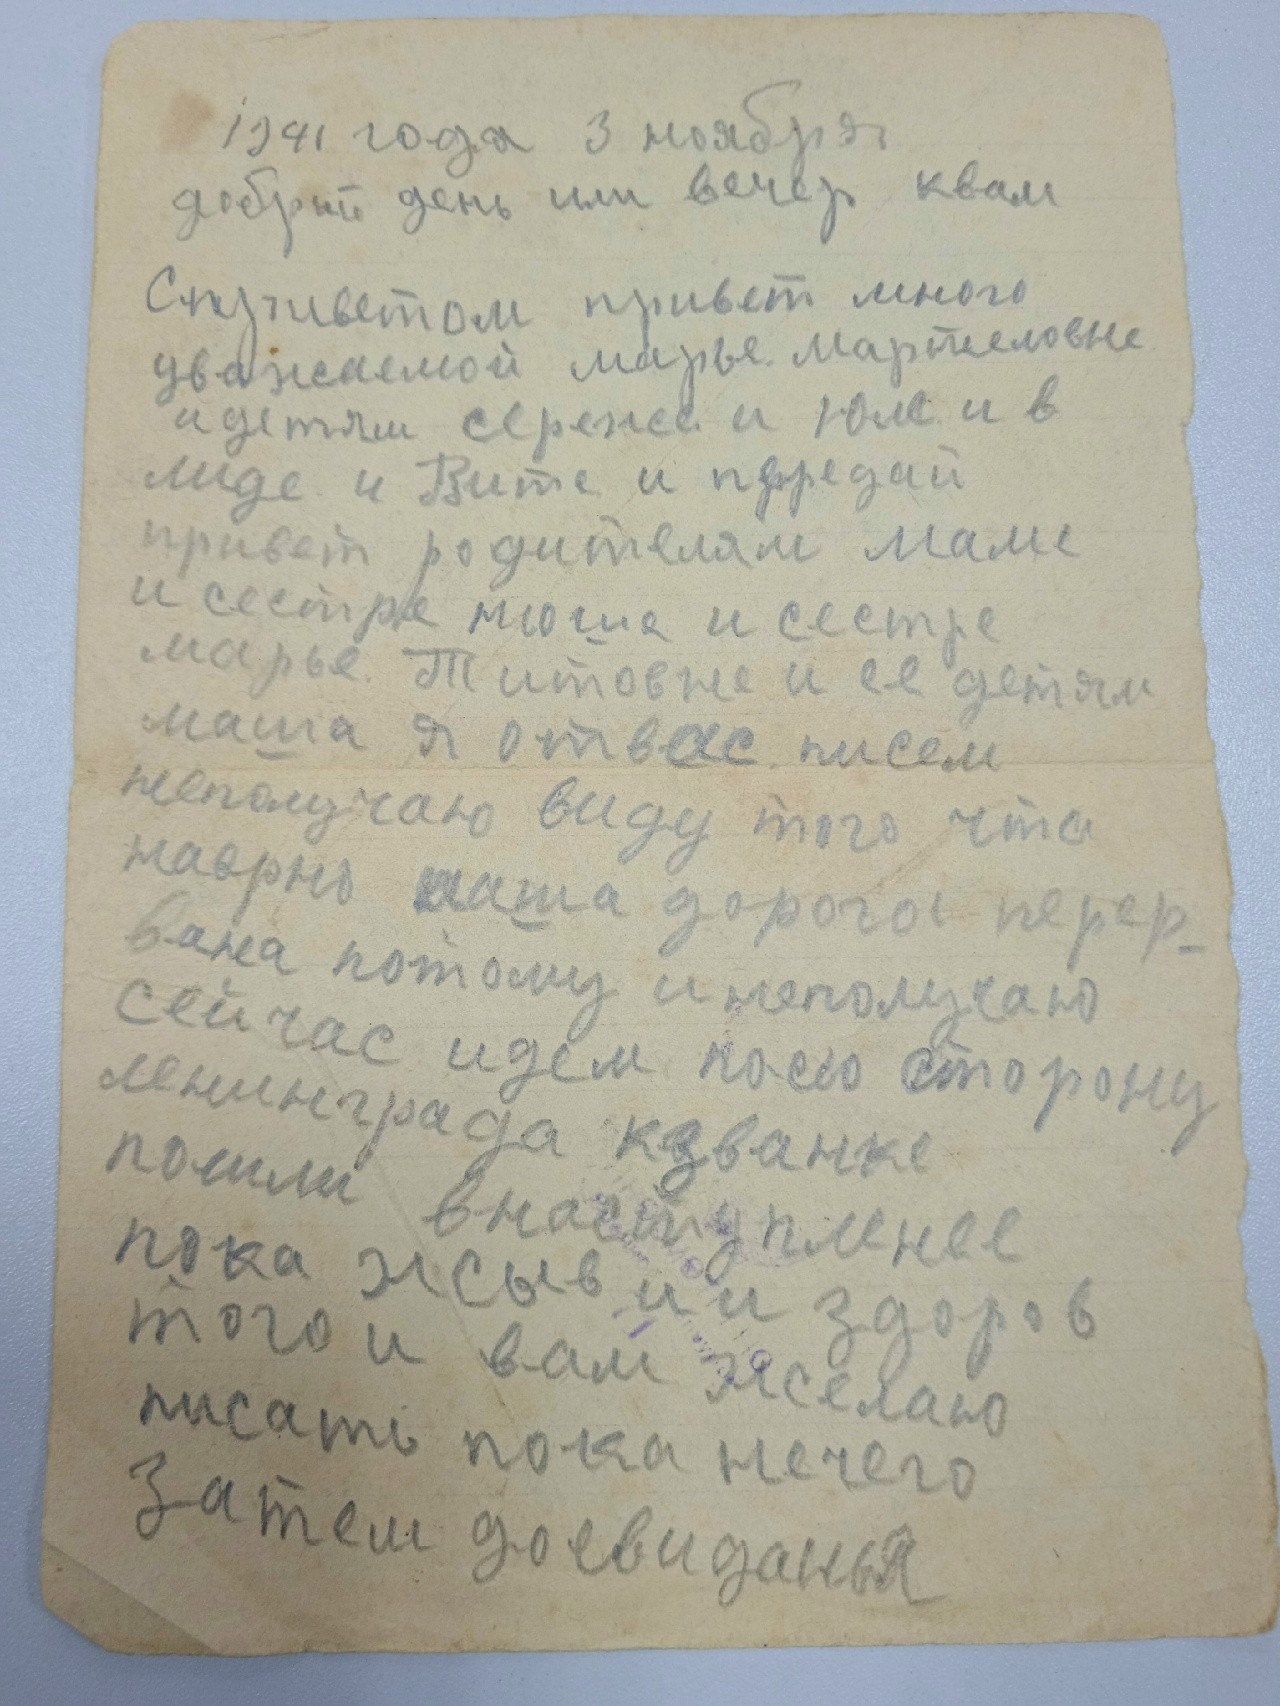 1941 года 3 ноября
добрый день или вечер квам
Сприветом привет много
уважаемой марье. Мартеловне
идетям сереже и юле и в
лиде и Вите и передай
привет родителям маме
и сестре нюше и сестре
марье Титовне и ее детям
маша я отвас писем
неполучаю виду того что
наврно наша дорога перер-
вана потому и неполучаю
сейчас идем посю сторону
ленинграда кзванке
пошли внаступленее
пока жсыв и и здоров
того и вам жселаю
писать пока нечего
Затем доевиданья